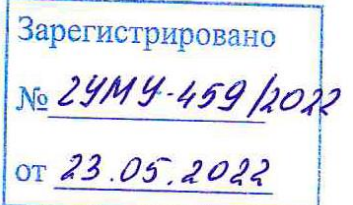 Зарегистрировано
№ 2УМУ-459/2022
от 23.05.2022